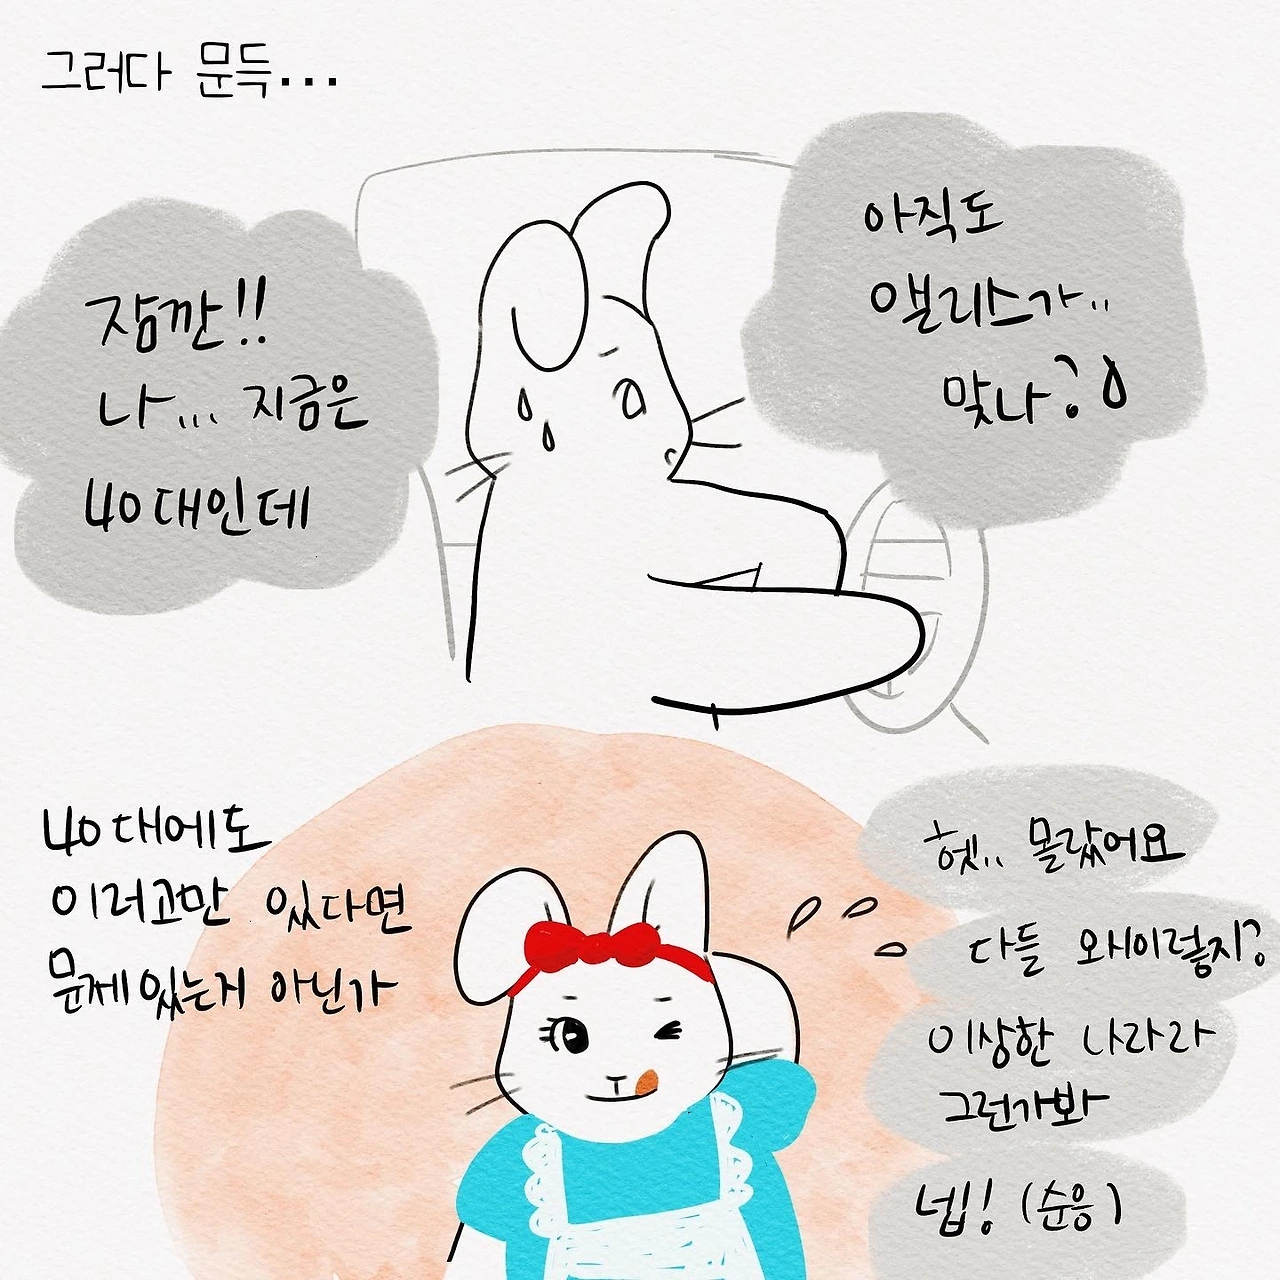 그러다 문득...
잠깐!!
나... 지금은
40대인데
아직도
앨리스가..
맞나?
40대에도
이러고만 있다면
문제있는거 아닌가
헷.. 몰랐어요
다들 왜이렇지?
이상한 나라라
그런가봐
넵! (순응)